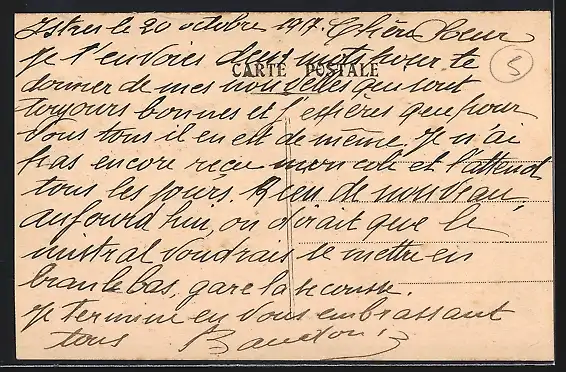 Istres le 20 octobre 1917. Chère Soeur
Je t'envoies deux mots pour te
CARTE POSTALE
donner de mes nouvelles qui sont
toujours bonnes et j'espères que pour
vous tous il en est de même. Je n'ai
pas encore reçu mon coli et l'attend
tous les jours. Rien de nouveau
aujourd'hui, on dirait que le
mistral voudrais se mettre en
branlebas, gare la secousse.
Je termine en vous embrassant
tous